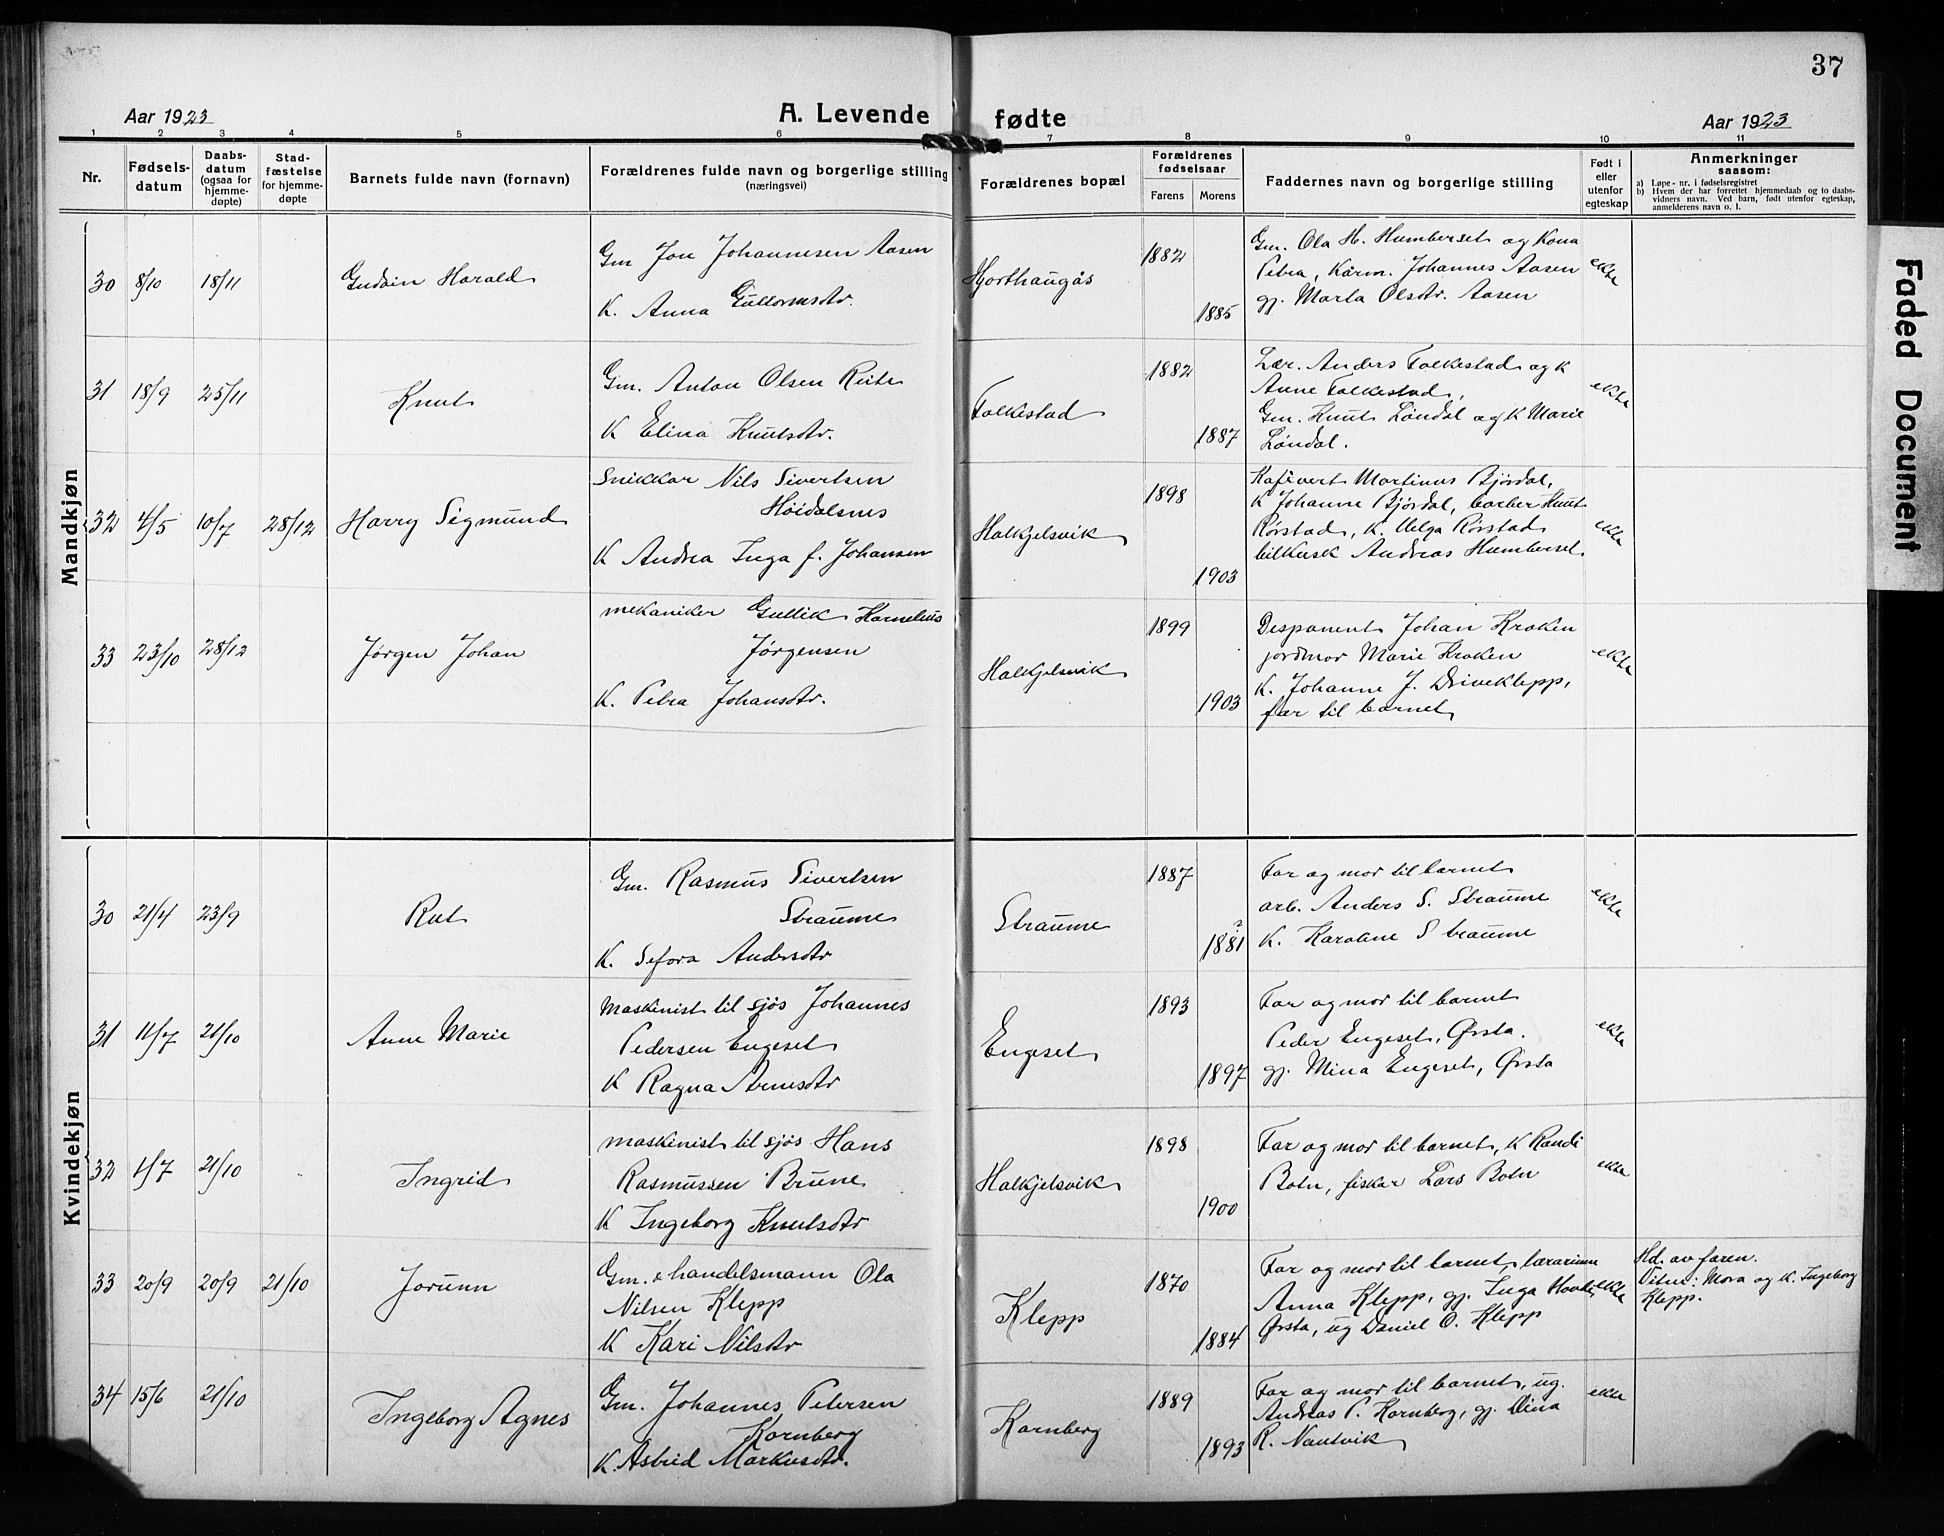 37
Aar 1923
A. Levende fødte
Aar 1923
1 2 3 4 5 6 7 8 9 10 11
Nr.
Fødsels-
datum
Daabs-
datum
(ogsaa for
hjemme-
døpte)
Stad-
fæstelse
for hjemme-
døpte
Barnets fulde navn (fornavn)
Forældrenes fulde navn og borgerlige stilling
(næringsvei)
Forældrenes bopæl
Forældrenes
fødselsaar
Farens Morens
Faddernes navn og borgerlige stilling
Født i
eller
utenfor
egteskap
Anmerkninger
saasom:
a) Løpe-nr. i fødselsregistret
b) Hvem der har forrettet hjemmedaab og to daabs-
vidners navn. Ved barn, født utenfor egteskap,
anmelderens navn o. l.
Faded Document
Mandkjøn
30 8/10 18/11
Harald
Gm Jon Johannesen Aasen
K. Anna Guttormsdtr.
Hjorthaugås
1882
1885
Gm. Ola H. Humberset og Kona
Petra, Karm. Johannes Aasen
gj. Marta Olsdtr. Aasen
ekte
31 18/9 25/11
Knut
Gm. Anton Olsen Reite
K Elina Knutsdtr.
Folkestad
1882
1887
Lær. Anders Folkestad og K
Anne Folkestad,
Gm. Knut Løndal og K Marie
Løndal.
ekte
32 4/5 10/7 28/12
Harry Sigmund
Snikkar Nils Sivertsen
Höidalsnes
K Andrea Inga f. Johansen
Halkjelsvik
1898
1903
Kafévert Martinus Bjørdal,
K Johanne Bjørdal, barber Knut
Rørstad, K. Helga Rørstad
bilkusk Andreas Humberset
ekte
33 23/10 28/12
Jørgen Johan
mekaniker Gullik Kornelius
Jørgensen
K. Petra Johansdtr.
Halkjelsvik
1899
1903
Disponent Johan Kroken
jordmor Marie Kroken
K. Johanne J. Driveklepp,
far til barnet
ekte
Kvindekjøn
30 21/4 23/9
Rut
Gm. Rasmus Sivertsen
Straume
K. Sefora Andersdtr
Straume
1887
?
1881
Far og mor til barnet
arb. Anders S. Straume
K. Karoline Straume
ekte
31 11/7 21/10
Anne Marie
Maskinist til sjøs Johannes
Pedersen Engeset
K Ragna Arnesdtr
Engeset
1893
1897
Far og mor til barnet
Peder Engeset, Ørsta.
gj. Mina Engeset, Ørsta
ekte
32 1/7 21/10
Ingrid
maskinist til sjøs Hans
Rasmussen Brune
K Ingeborg Knutsdtr
Halkjelsvik
1898
1900
Far og mor til barnet, K Randi
Botn, fiskar Lars Botn
ekte
33 20/9 20/9 21/10
Jorunn
Gm. & handelsmann Ola
Nilsen Klepp
K Kari Nilsdtr
Klepp
1870
1884
Far og mor til barnet, lærarinne
Anna Klepp, gj. Inga Hovde,
Ørsta, ug Daniel O. Klepp
ekte
Hd. av faren.
Vitne: Mora og K. Ingeborg
Klepp.
34 15/6 21/10
Ingeborg Agnes
Gm. Johannes Petersen
Kornberg
K. Astrid Markusdtr.
Kornberg
1889
1893
Far og mor til barnet, ug.
Andreas P. Kornberg, gj. Dina
R. Nautvik
ekte